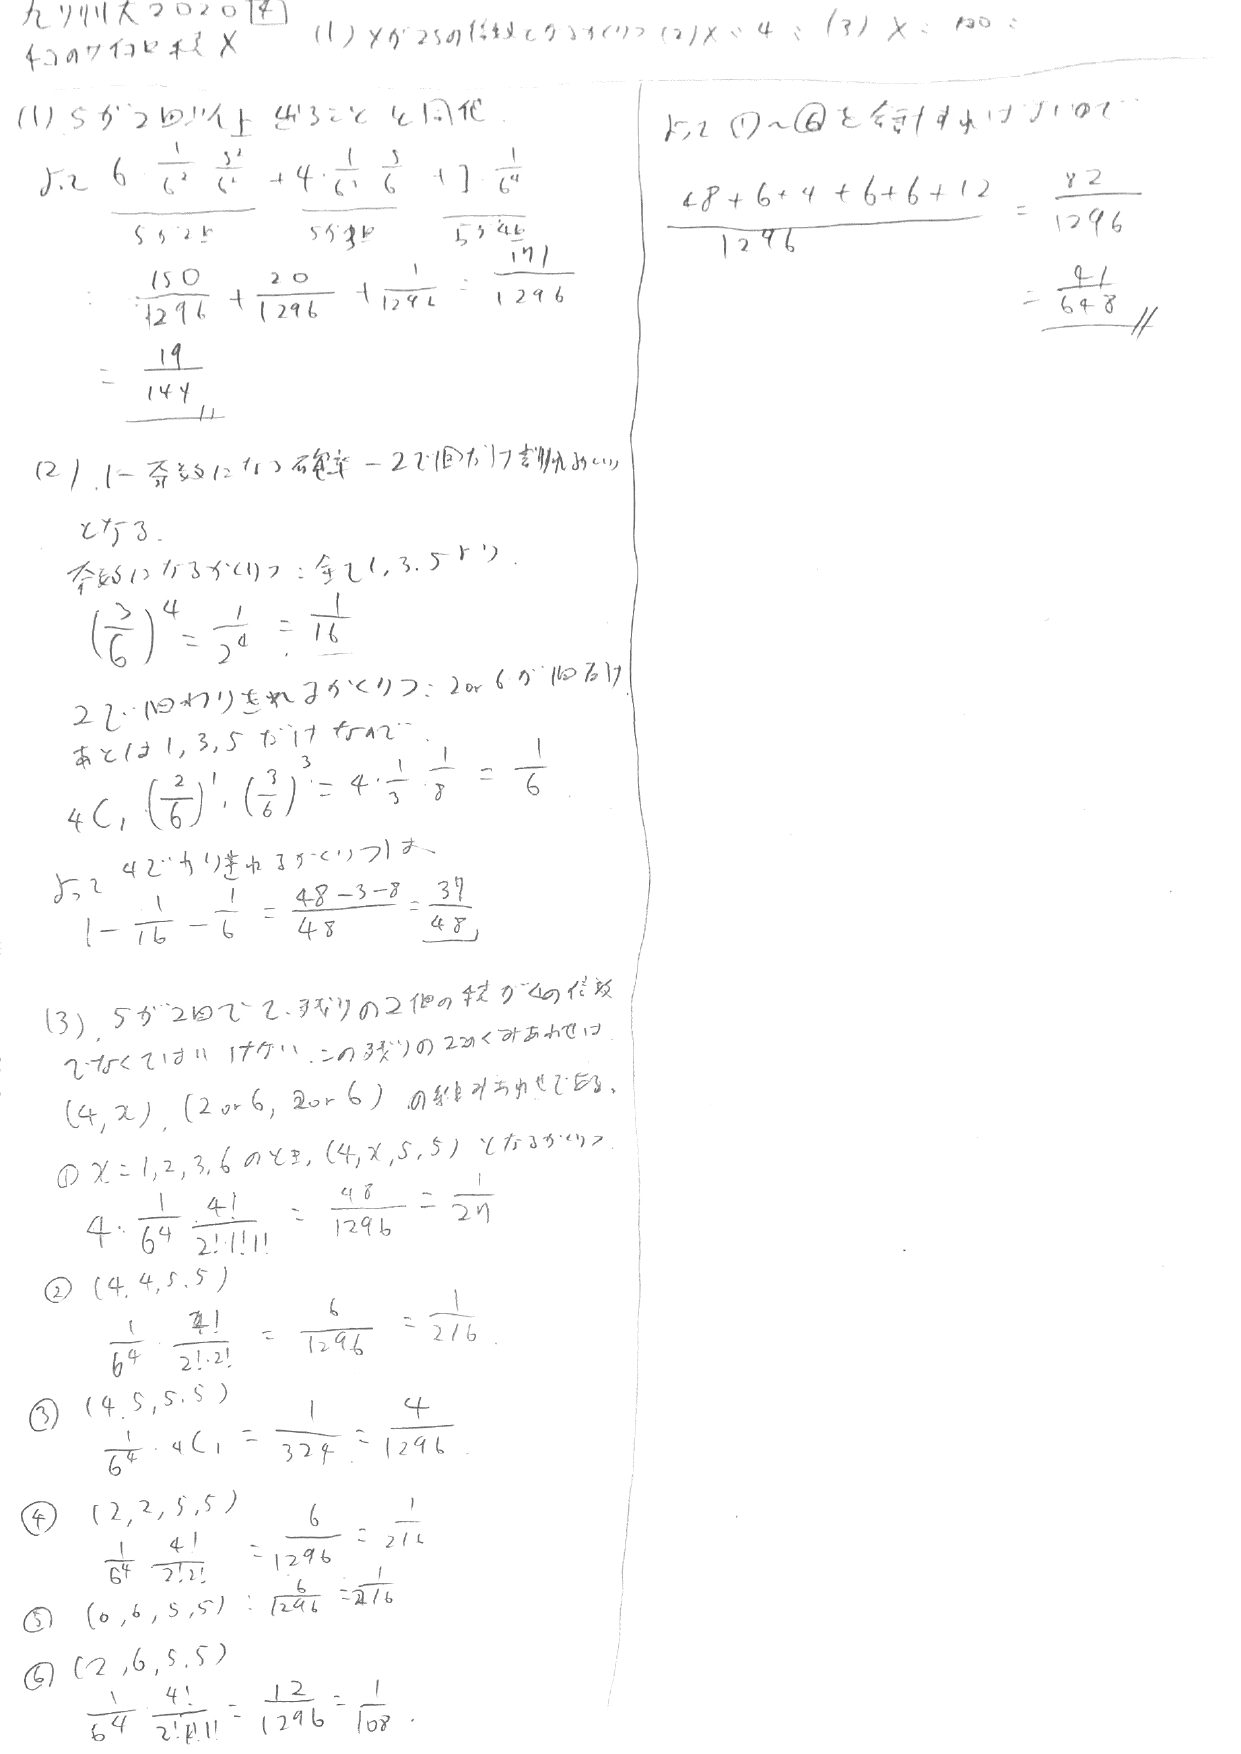 九州大2020 4
4コのサイコロ 積X (1) Xが25の倍数となるかくりつ (2) X: 4: (3) X: 100:
(1) 5が2回以上出ることと同値.
よって 6・1/6²・5²/6² + 4・1/6³・5/6 + 1・1/6⁴
5が2回 5が3回 5が4回
= 150/1296 + 20/1296 + 1/1296 = 171/1296
= 19/144
(2) 1-奇数になる確率-2で1回だけ割れるかくりつ
となる.
奇数になるかくりつ: 全て1,3,5より.
(3/6)⁴ = 1/2⁴ = 1/16
2で1回わりきれるかくりつ: 2or6が1回だけ
あとは1,3,5だけなので.
4C1 (2/6)¹・(3/6)³ = 4・1/3・1/8 = 1/6
よって 4でわりきれるかくりつは
1-1/16-1/6 = (48-3-8)/48 = 37/48
(3) 5が2回でて、残りの2個の積が4の倍数
でなくてはいけない. この残りの2つのくみあわせは
(4,x), (2or6, 2or6) の組みあわせである.
① x=1,2,3,6のとき, (4,x,5,5) となるかくりつ
4・1/6⁴・4!/(2!・1!1!) = 48/1296 = 1/27
② (4,4,5,5)
1/6⁴・4!/(2!・2!) = 6/1296 = 1/216
③ (4,5,5,5)
1/6⁴・4C1 = 1/324 = 4/1296
④ (2,2,5,5)
1/6⁴ 4!/(2!2!) = 6/1296 = 1/216
⑤ (6,6,5,5) : 6/1296 = 1/216
⑥ (2,6,5,5)
1/6⁴・4!/(2!1!1!) = 12/1296 = 1/108.
よって①~⑥を合計すればよいので
(48+6+4+6+6+12)/1296 = 82/1296
= 41/648